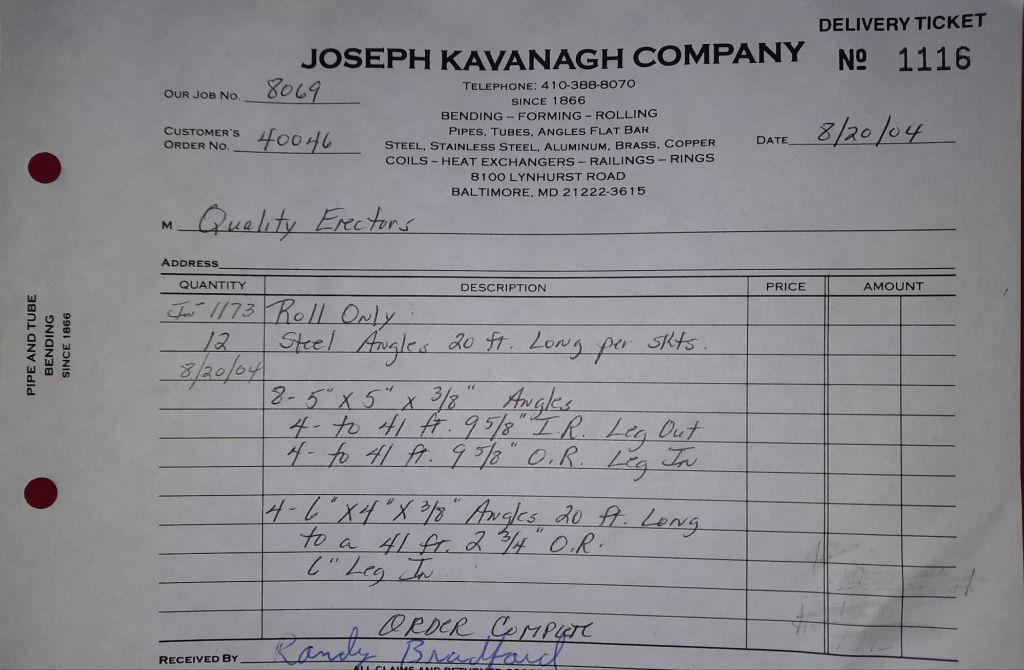 DELIVERY TICKET
JOSEPH KAVANAGH COMPANY
Nº 1116
OUR JOB NO. 8069
TELEPHONE: 410-388-8070
SINCE 1866
BENDING – FORMING – ROLLING
CUSTOMER'S
ORDER NO. 40046
PIPES, TUBES, ANGLES FLAT BAR
STEEL, STAINLESS STEEL, ALUMINUM, BRASS, COPPER
DATE 8/20/04
COILS – HEAT EXCHANGERS – RAILINGS – RINGS
8100 LYNHURST ROAD
BALTIMORE, MD 21222-3615
M Quality Erectors
ADDRESS
QUANTITY DESCRIPTION PRICE AMOUNT
1173 Roll Only
12 Steel Angles 20 ft. Long per skts.
8/20/04
8- 5" X 5" x 3/8" Angles
4- to 41 ft. 9 5/8" I.R. Leg Out
4- to 41 ft. 9 5/8" O.R. Leg In
4- 6" X 4" X 3/8" Angles 20 ft. Long
to a 41 ft. 2 3/4" O.R.
6" Leg In
ORDER COMPLETE
RECEIVED BY Randy Bradford
ALL CLAIMS AND RETURNED
PIPE AND TUBE
BENDING
SINCE 1866